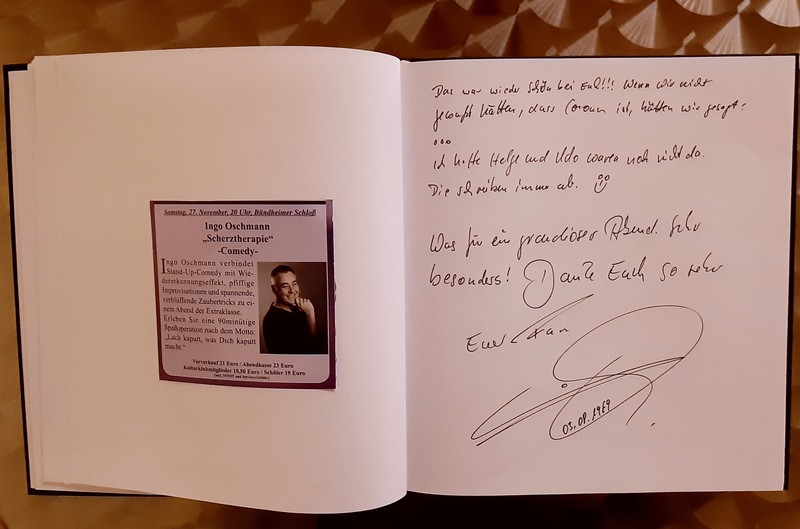 Samstag, 27. November, 20 Uhr, Bündheimer Schloß
Ingo Oschmann
„Scherztherapie“
-Comedy-
Ingo Oschmann verbindet
Stand-Up-Comedy mit Wie-
dererkennungseffekt, pfiffige
Improvisationen und spannende,
verblüffende Zaubertricks zu ei-
nem Abend der Extraklasse.
Erleben Sie eine 90minütige
Spaßoperation nach dem Motto:
„Lach kaputt, was Dich kaputt
macht.“
Vorverkauf 21 Euro / Abendkasse 23 Euro
Kulturklubmitglieder 18,50 Euro / Schüler 19 Euro
(incl. MWST und Service-Gebühr)
Das war wieder schön bei Euch!!! Wenn wir nicht
gewußt hätten, dass Corona ist, hätten wir gesagt:
...
Ich hoffe Helge und Udo waren noch nicht da.
Die schreiben immer ab.
Was für ein grandioser Abend. Sehr
besonders! Danke Euch so sehr
Euer
03.08.1969